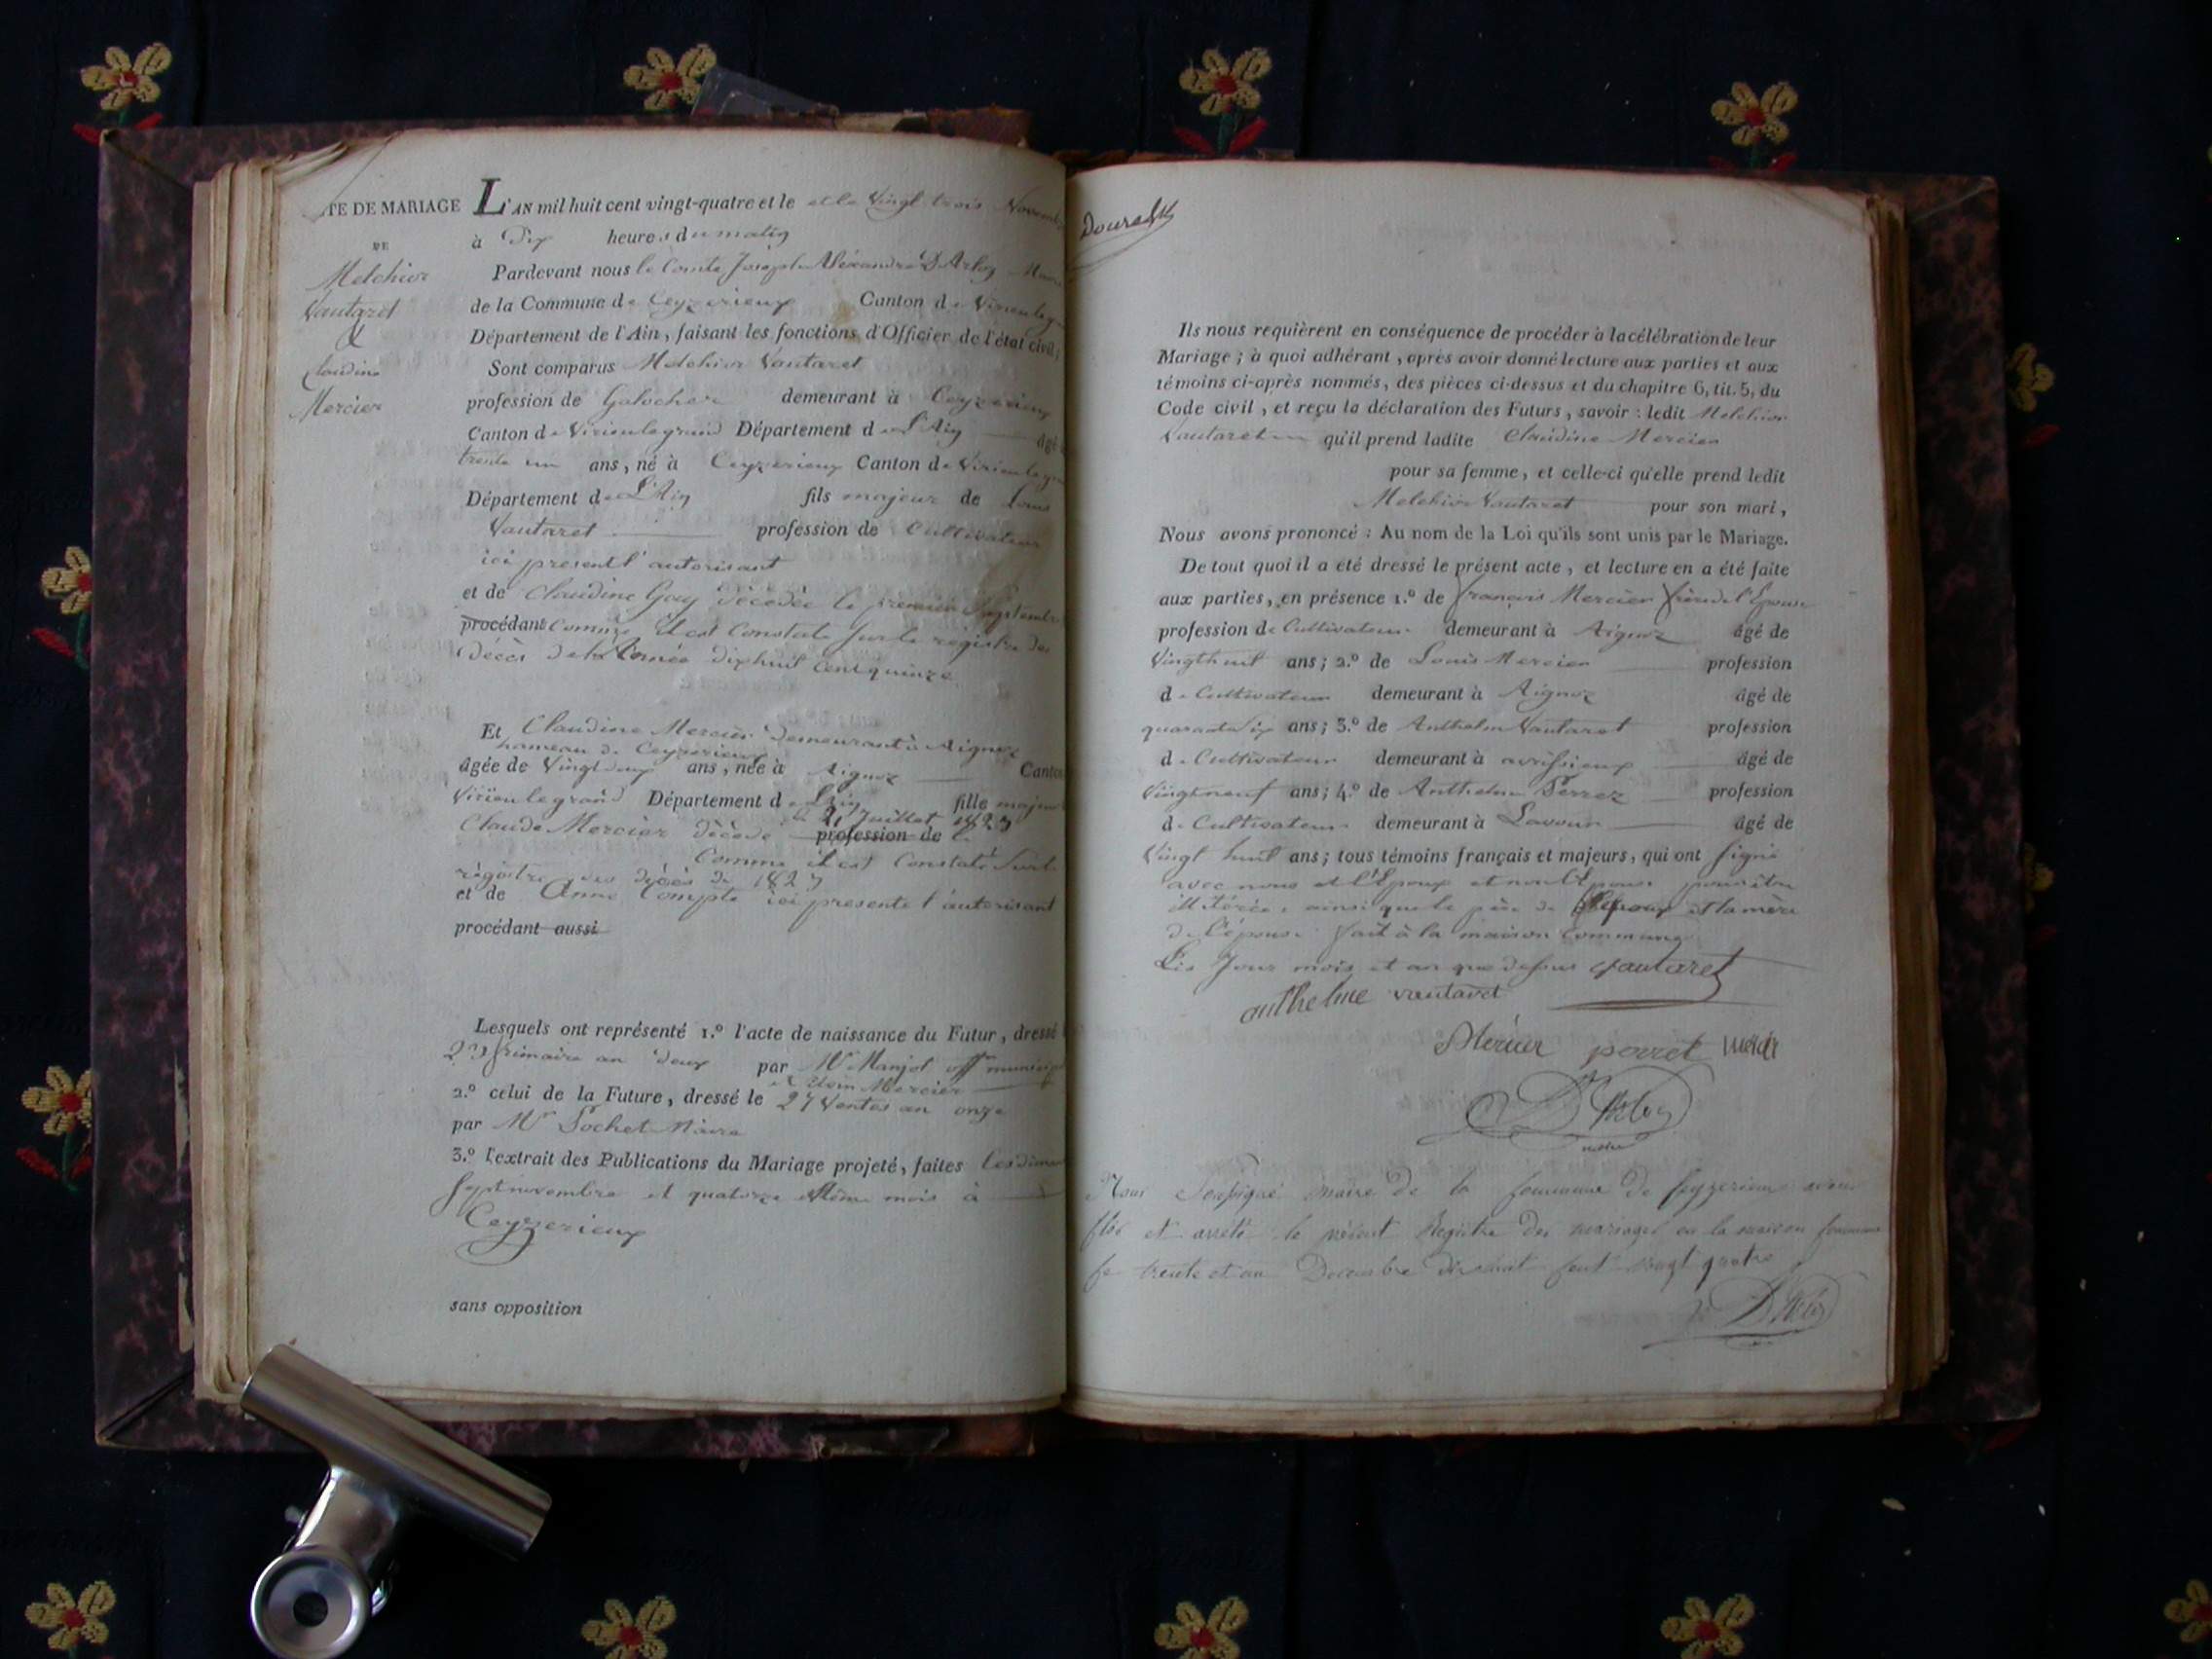 TE DE MARIAGE
DE
Melchior
Vautaret
&
Claudine
Mercier
L'AN mil huit cent vingt-quatre et le et le Vingt trois Novemb
à Dix heures du matin
Pardevant nous le Comte Joseph Alexandre D'Arloz Maire
de la Commune de Ceyzerieux Canton de Virieulegr
Département de l'Ain, faisant les fonctions d'Officier de l'état civil;
Sont comparus Melchior Vautaret
profession de Galocher demeurant à Ceyzerieux
Canton de Virieulegrand Département de L'Ain âgé
trente un ans, né à Ceyzerieux Canton de Virieulegr
Département de L'Ain fils majeur de Louis
Vautaret profession de Cultivateur
ici present l'autorisant
et de Claudine Gay décédée le premier Septembre
procédant Comme il est Constaté sur le régistre des
décès de l'année dixhuit cent quinze
Et Claudine Mercier demeurant à Aignoz
hameau de Ceyzerieux
âgée de Vingt deux ans, née à Aignoz Canton
Virieulegrand Département de L'Ain fille majeure
Claude Mercier décédé profession de le
21 Juillet 1823
Comme il est Constaté sur le
régistre des décès de 1823
et de Anne Compte ici presente l'autorisant
procédant aussi
Lesquels ont représenté 1.º l'acte de naissance du Futur, dressé
23 frimaire an deux par Mr Manjot off municip
2.º celui de la Future, dressé le 27 Ventos an onze
par Mr Pochet Maire
3.º l'extrait des Publications du Mariage projeté, faites les diman
sept novembre et quatorze même mois à
Ceyzerieux
sans opposition
Ils nous requièrent en conséquence de procéder à la célébration de leur
Mariage; à quoi adhérant, après avoir donné lecture aux parties et aux
témoins ci-après nommés, des pièces ci-dessus et du chapitre 6, tit. 5, du
Code civil, et reçu la déclaration des Futurs, savoir: ledit Melchior
Vautaret qu'il prend ladite Claudine Mercier
pour sa femme, et celle-ci qu'elle prend ledit
Melchior Vautaret pour son mari,
Nous avons prononcé: Au nom de la Loi qu'ils sont unis par le Mariage.
De tout quoi il a été dressé le présent acte, et lecture en a été faite
aux parties, en présence 1.º de François Mercier frère de l'Epouse
profession de Cultivateur demeurant à Aignoz âgé de
Vingthuit ans; 2.º de Louis Mercier profession
de Cultivateur demeurant à Aignoz âgé de
quarante six ans; 3.º de Anthelme Vautaret profession
de Cultivateur demeurant à avrissieux âgé de
Vingtneuf ans; 4.º de Anthelme Perrez profession
de Cultivateur demeurant à Lavour âgé de
Vingt huit ans; tous témoins français et majeurs, qui ont signé
avec nous et l'Epoux et non l'Epouse pour être
illitérée, ainsi que le père de l'Epoux et la mère
de l'épouse fait à la maison Commune
Les Jour mois et an que dessus Vautaret
anthelme vautaret
Mercier perret
D'Arloz
Nous soussigné maire de la Commune de Ceyzerieux avons
clos et arrêté le présent Registre des mariages en la maison Commune
ce trente et un Decembre dix huit cent vingt quatre
D'Arloz